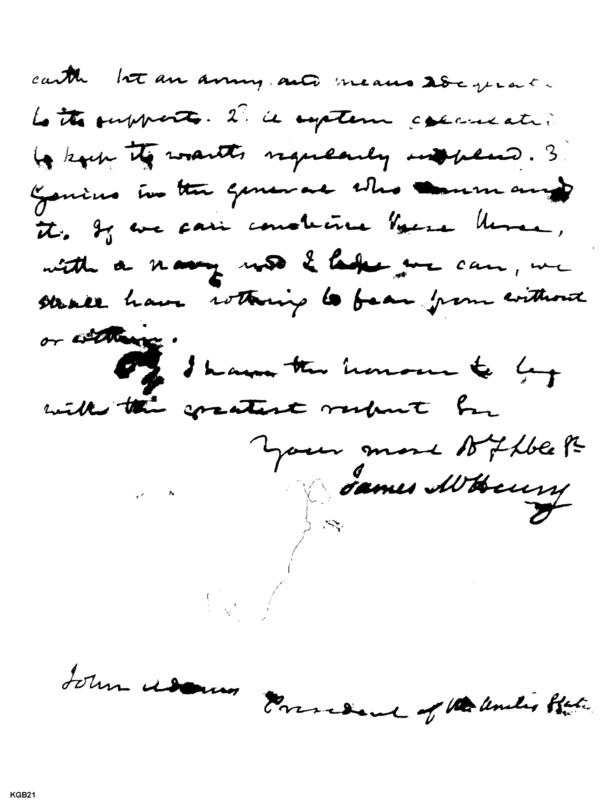 earth 1st an army and means adequate
to its support. 2d. a system calculated
to keep its wants regularly supplied. 3
Genius in the general who command
it. If we can combine these three,
with a navy and I hope we can, we
shall have nothing to fear from without
or within.
I have the honour to be
with the greatest respect Sir
Your most
James McHenry
John Adams
President of the United States
KGB21